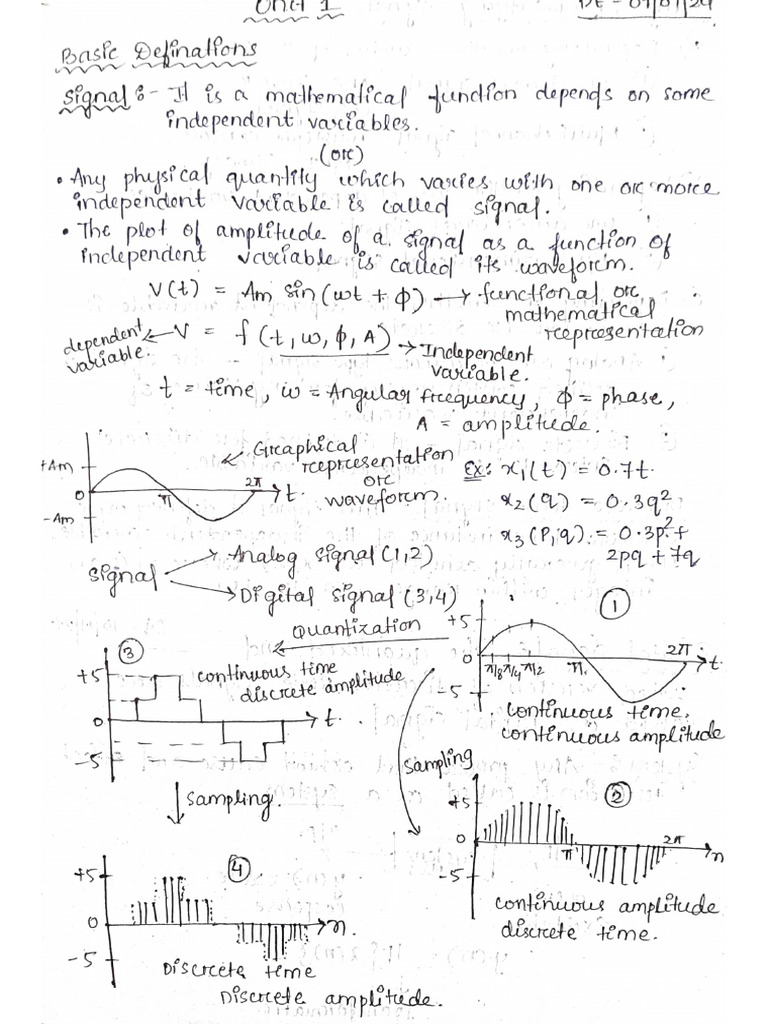 Unit 1
Basic Definations
Signal :- It is a mathematical function depends on some
independent variables.
(or)
• Any physical quantity which varies with one or more
independent variable is called signal.
• The plot of amplitude of a signal as a function of
independent variable is called its waveform.
V(t) = Am sin(wt + ϕ) → functional or
mathematical
representation
dependent
variable.
← V = f(t, w, ϕ, A) → Independent
variable.
t = time, w = Angular frequency, ϕ = phase,
A = amplitude.
+Am
0
-Am
π
2π
t.
Graphical
representation
or
waveform.
Ex: x₁(t) = 0.7t.
x₂(q) = 0.3q²
x₃(P,q) = 0.3p² +
2pq + 7q
Signal
Analog signal (1,2)
Digital signal (3,4)
1
+5
0
-5
π/8
π/4
π/2
π
2π
t.
continuous time.
continuous amplitude
Quantization
3
+5
0
-5
t.
continuous time
discrete amplitude
Sampling
↓ Sampling.
2
+5
0
-5
π
2π
n
continuous amplitude
discrete time.
4
+5
0
-5
n.
Discrete time
Discrete amplitude.